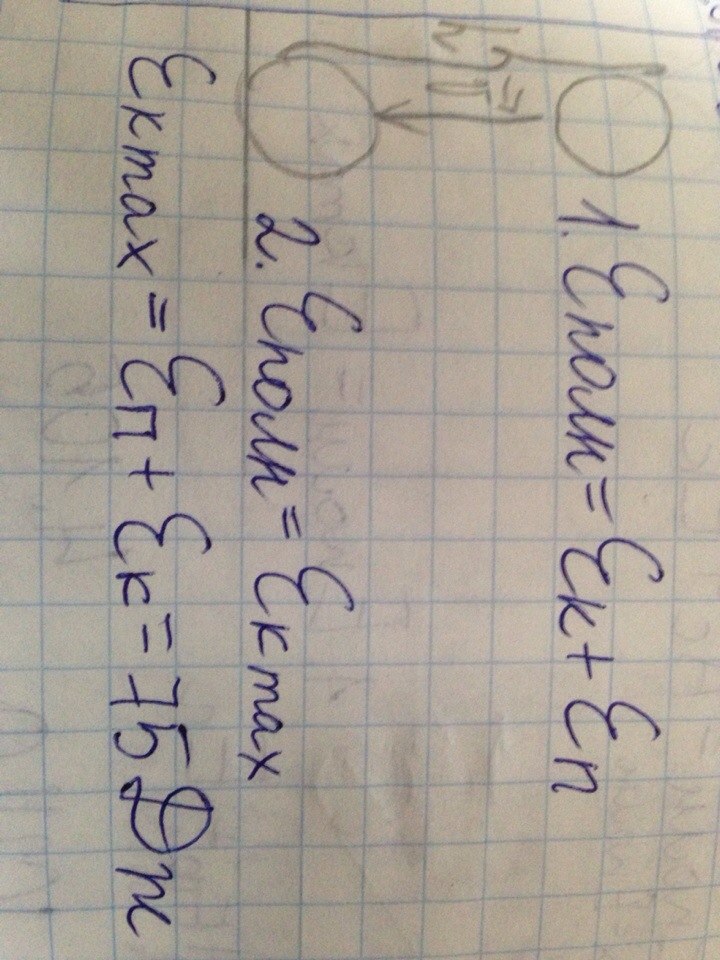 h
1. Eполн = Eк + Eп
2. Eполн = Eк max
Eк max = Eп + Eк = 75 Дж